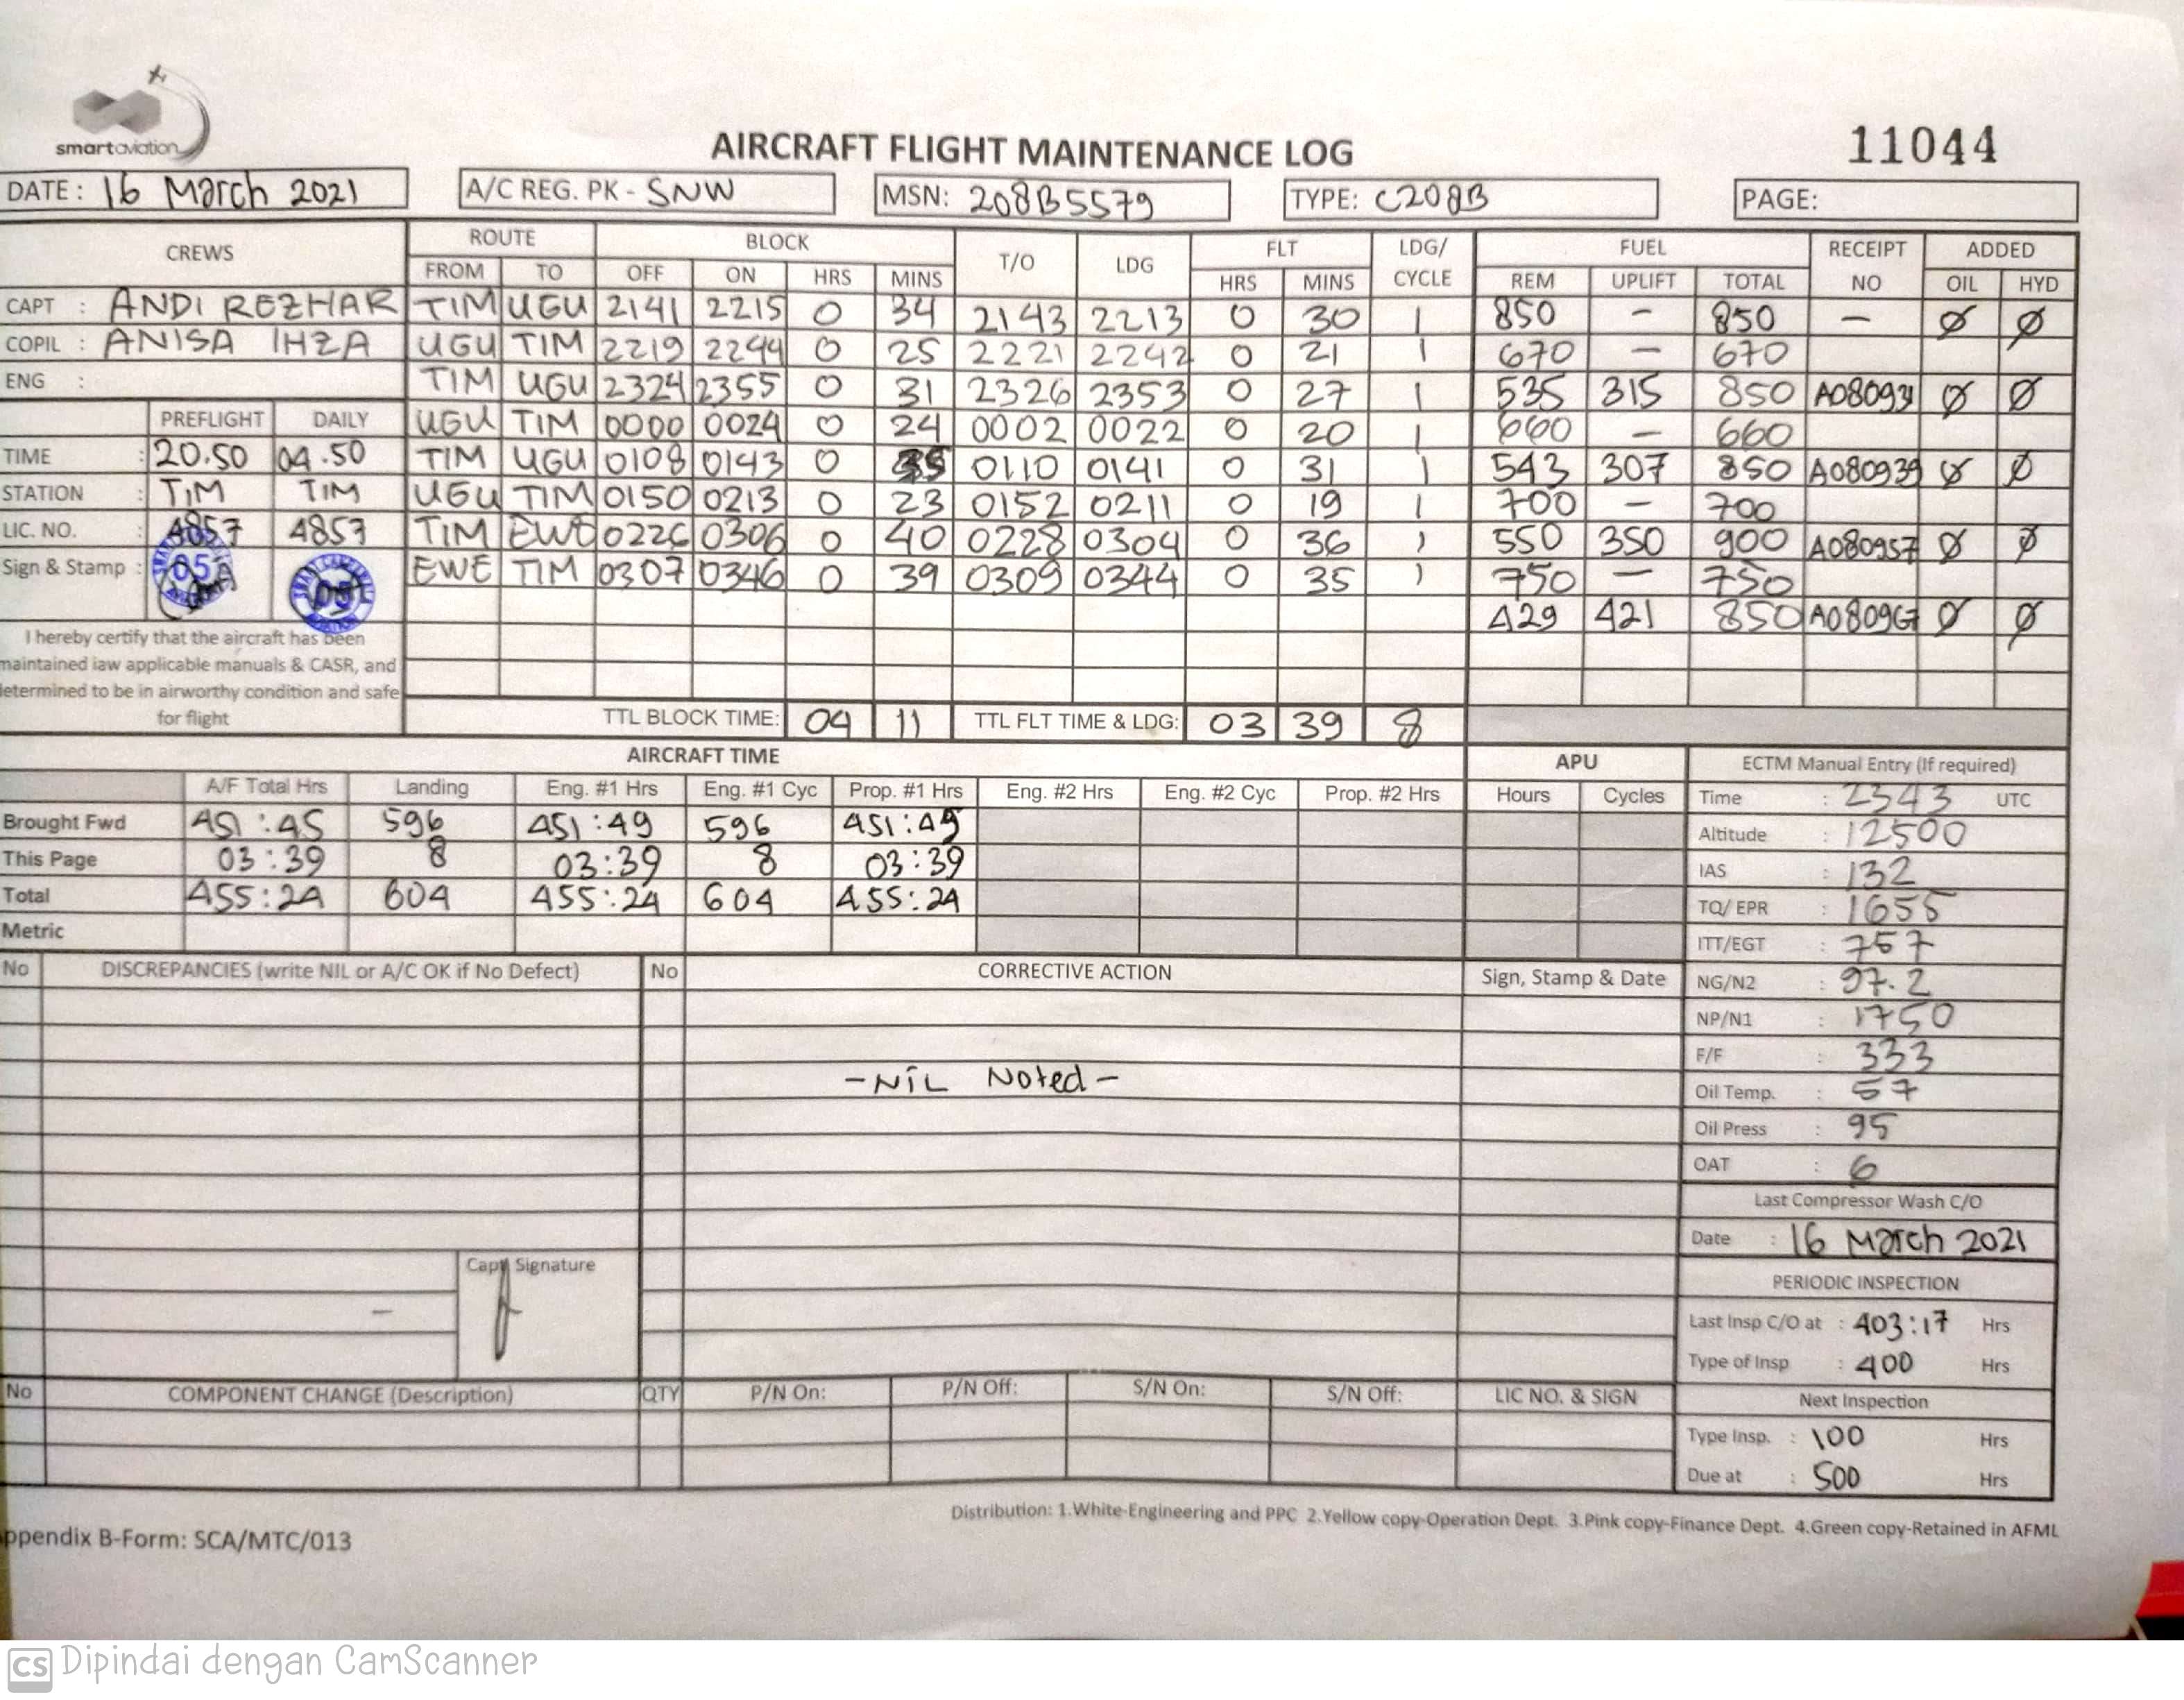 smartaviation
AIRCRAFT FLIGHT MAINTENANCE LOG
11044
DATE : 16 March 2021
A/C REG. PK - SNW
MSN: 208B5579
TYPE: C208B
PAGE:
CREWS ROUTE BLOCK T/O LDG FLT LDG/ CYCLE FUEL RECEIPT NO ADDED
FROM TO OFF ON HRS MINS HRS MINS REM UPLIFT TOTAL OIL HYD
CAPT : ANDI REZHAR TIM UGU 2141 2215 0 34 2143 2213 0 30 1 850 - 850 - Ø Ø
COPIL : ANISA IHZA UGU TIM 2219 2244 0 25 2221 2242 0 21 1 670 - 670
ENG : TIM UGU 2324 2355 0 31 2326 2353 0 27 1 535 315 850 A080931 Ø Ø
PREFLIGHT DAILY UGU TIM 0000 0024 0 24 0002 0022 0 20 1 660 - 660
TIME : 20.50 04.50 TIM UGU 0108 0143 0 35 0110 0141 0 31 1 543 307 850 A080939 Ø Ø
STATION : TIM TIM UGU TIM 0150 0213 0 23 0152 0211 0 19 1 700 - 700
LIC. NO. : 4857 4857 TIM EWE 0226 0306 0 40 0228 0304 0 36 1 550 350 900 A080957 Ø Ø
Sign & Stamp : 05 05 EWE TIM 0307 0346 0 39 0309 0344 0 35 1 750 - 750
429 421 850 A080967 Ø Ø
I hereby certify that the aircraft has been
maintained iaw applicable manuals & CASR, and
determined to be in airworthy condition and safe
for flight
TTL BLOCK TIME: 04 11 TTL FLT TIME & LDG: 03 39 8
AIRCRAFT TIME APU
A/F Total Hrs Landing Eng. #1 Hrs Eng. #1 Cyc Prop. #1 Hrs Eng. #2 Hrs Eng. #2 Cyc Prop. #2 Hrs Hours Cycles
Brought Fwd 451:45 596 451:49 596 451:45
This Page 03:39 8 03:39 8 03:39
Total 455:24 604 455:24 604 455:24
Metric
ECTM Manual Entry (If required)
Time : 2343 UTC
Altitude : 12500
IAS : 132
TQ/ EPR : 1655
ITT/EGT : 757
NG/N2 : 97.2
NP/N1 : 1750
F/F : 333
Oil Temp. : 57
Oil Press : 95
OAT : 6
Last Compressor Wash C/O
Date : 16 March 2021
PERIODIC INSPECTION
Last Insp C/O at : 403:17 Hrs
Type of Insp : 400 Hrs
Next Inspection
Type Insp. : 100 Hrs
Due at : 500 Hrs
No DISCREPANCIES (write NIL or A/C OK if No Defect) No CORRECTIVE ACTION Sign, Stamp & Date
- NIL Noted -
Capt Signature
-
No COMPONENT CHANGE (Description) QTY P/N On: P/N Off: S/N On: S/N Off: LIC NO. & SIGN
Distribution: 1.White-Engineering and PPC 2.Yellow copy-Operation Dept. 3.Pink copy-Finance Dept. 4.Green copy-Retained in AFML
ppendix B-Form: SCA/MTC/013
CS Dipindai dengan CamScanner